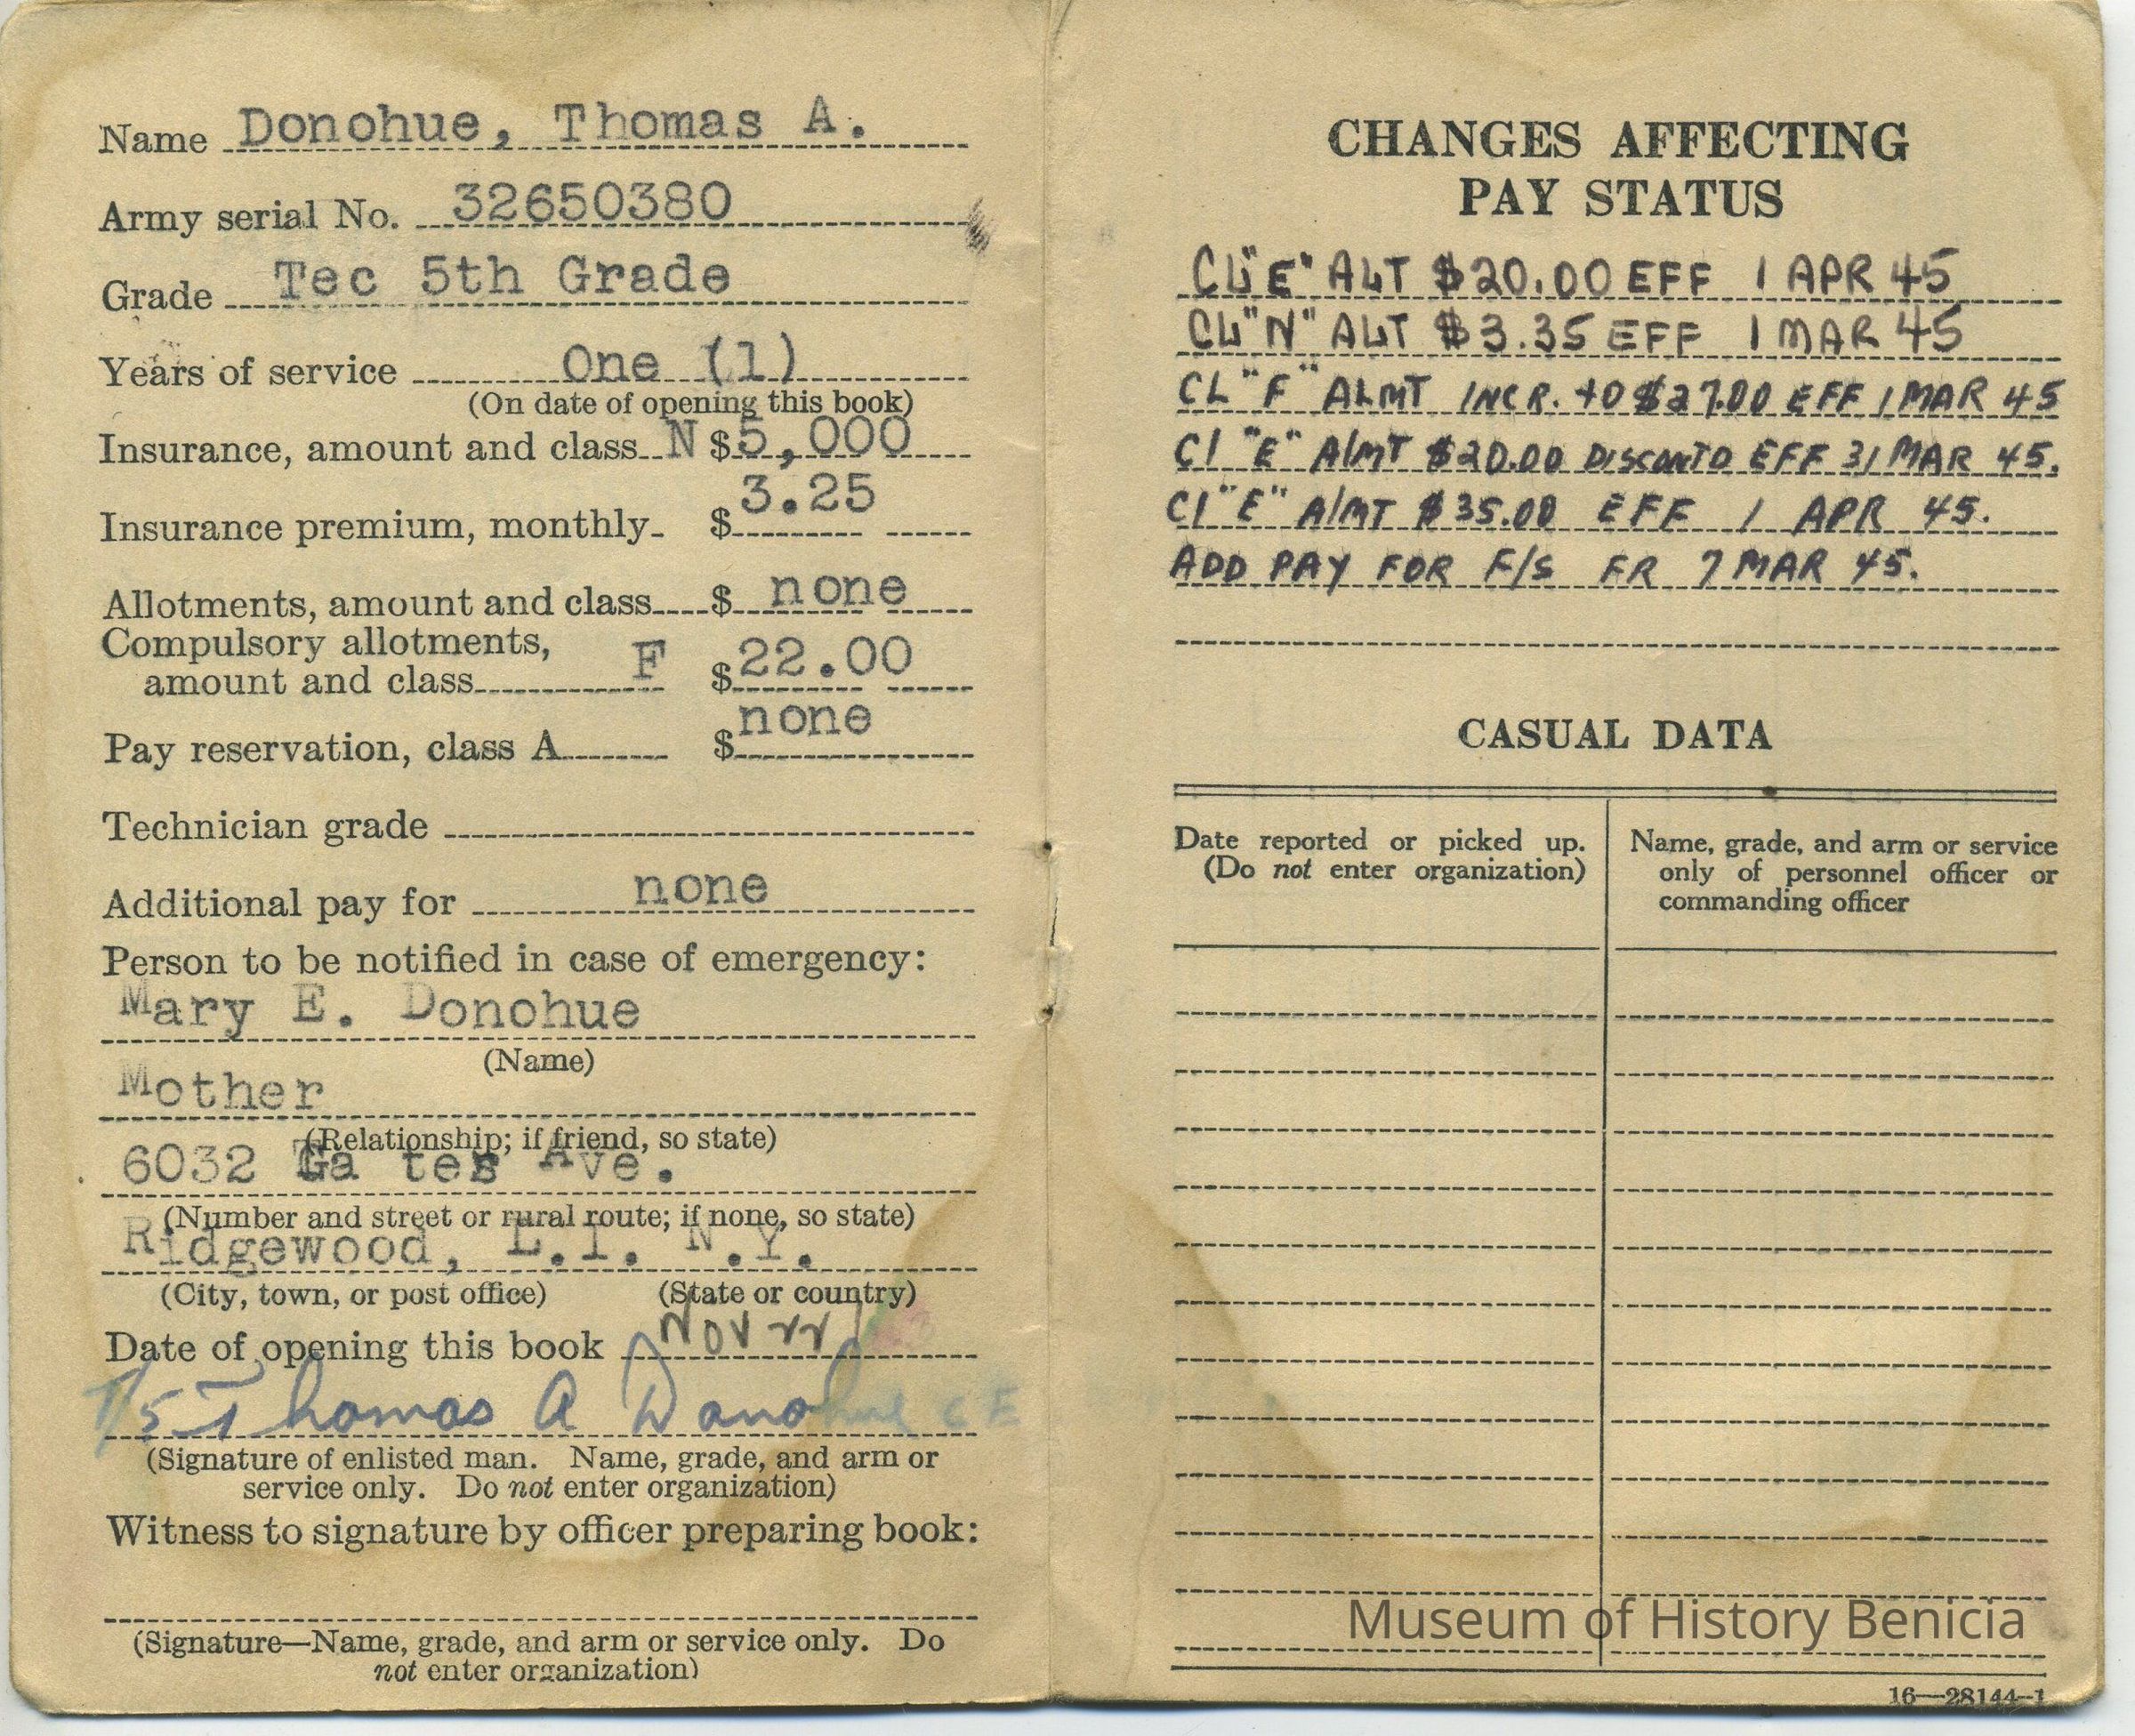 Name Donohue, Thomas A.
Army serial No. 32650380
Grade Tec 5th Grade
Years of service One (1)
(On date of opening this book)
Insurance, amount and class N $5,000
Insurance premium, monthly $3.25
Allotments, amount and class $ none
Compulsory allotments,
amount and class F $22.00
Pay reservation, class A $none
Technician grade
Additional pay for none
Person to be notified in case of emergency:
Mary E. Donohue
(Name)
Mother
(Relationship; if friend, so state)
6032 Gates Ave.
(Number and street or rural route; if none, so state)
Ridgewood, L.I. N.Y.
(City, town, or post office) (State or country)
Date of opening this book Nov 22
T/5 Thomas A Donohue CE
(Signature of enlisted man. Name, grade, and arm or
service only. Do not enter organization)
Witness to signature by officer preparing book:
(Signature—Name, grade, and arm or service only. Do
not enter organization)
CHANGES AFFECTING
PAY STATUS
CL "E" ALT $20.00 EFF 1 APR 45
CL "N" ALT $3.35 EFF 1 MAR 45
CL "F" ALMT INCR. to $27.00 EFF 1 MAR 45
Cl "E" A/MT $20.00 DISCONTD EFF 31 MAR 45.
Cl "E" A/MT $35.00 EFF 1 APR 45.
ADD PAY FOR F/S FR 7 MAR 45.
CASUAL DATA
Date reported or picked up.
(Do not enter organization)
Name, grade, and arm or service
only of personnel officer or
commanding officer
Museum of History Benicia
16—28144-1